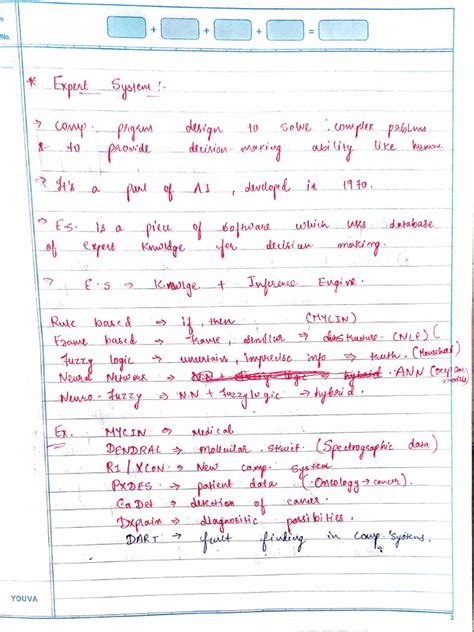 No.
+ + + =
* Expert System :-
→ comp. prgrm design to solve complex pablms
& to provide decision-making ability like human.
→ It's a part of AI, developed in 1970.
→ E.S. is a piece of software which uses database
of Expert knwldge for decision making.
→ E.S → Knowlge + Inference Engine.
Rule based → if, then (MYCIN)
Frame based → frame, similar → datastructure. (NLP) (
Fuzzy logic → uncertain, imprecise info → truth. (Household)
Neural Network → ANN
Neuro-Fuzzy → N.N + fuzzy logic → hybrid.
Ex. MYCIN → Medical
DENDRAL → molicular struct. (Spectrographic data)
R1/XCON → New comp. system
PXDES → patient data. (Oncology → cancer).
CaDet → detection of cancer.
Dxplain → diagnostic possibities.
DART → fault finding in comp. systems.
YOUVA
3